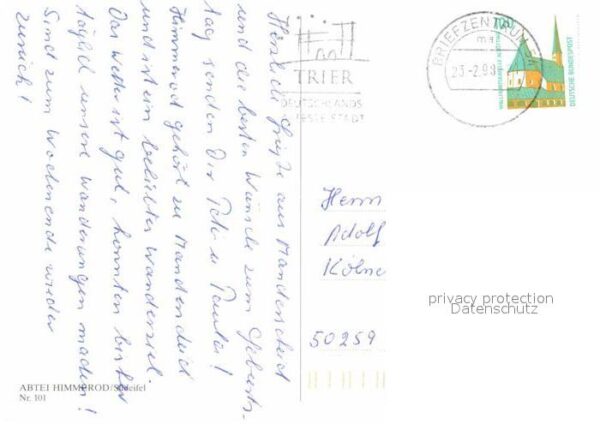 Herzliche Grüße aus Manderscheid
und die besten Wünsche zum Geburts-
tag senden Dir
Himmerod gehört zu Manderscheid
und ist ein beliebtes Wanderziel.
Das Wetter ist gut, konnten bisher
täglich unsere Wanderungen machen!
Sind zum Wochenende wieder
zurück!
ABTEI HIMMEROD/Südeifel
Nr. 101
TRIER
DEUTSCHLANDS
ÄLTESTE STADT
BRIEFZENTRUM
23-2.99
100
DEUTSCHE BUNDESPOST
WALLFAHRTSKAPELLE ALTÖTTING
Herrn
Adolf
Kölne
50259
privacy protection
Datenschutz